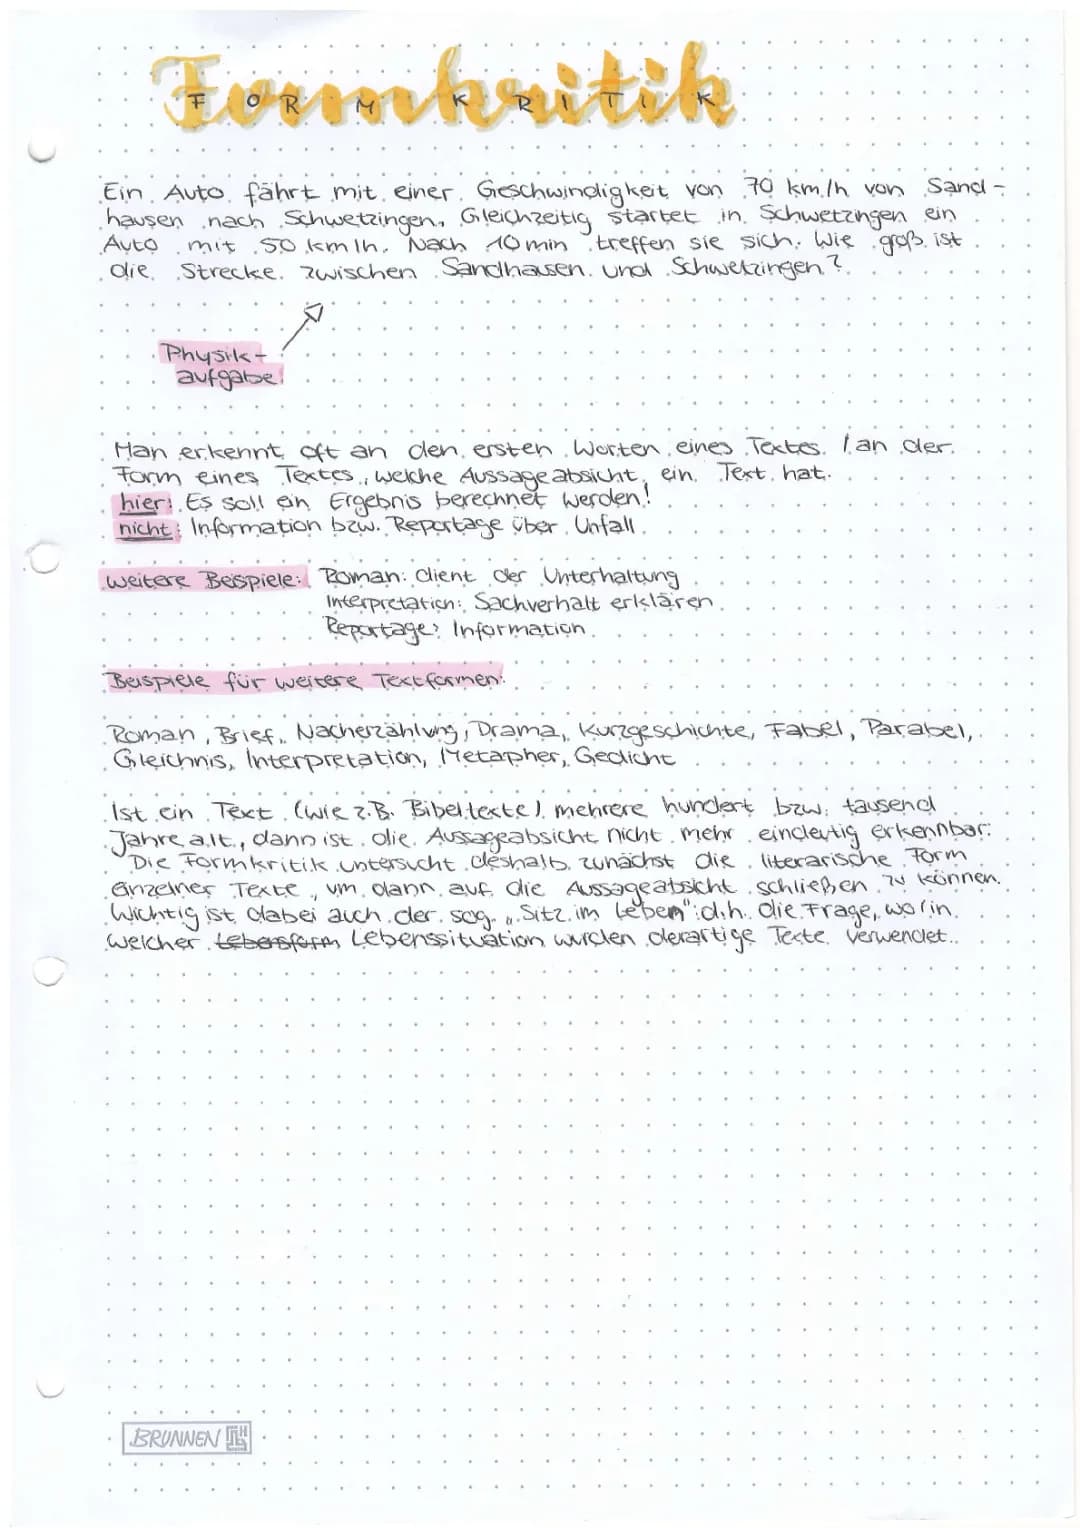 Formkritik
FORMKRITIK
Ein Auto fährt mit einer Geschwindigkeit von 70 km/h von Sand-
hausen nach Schwetzingen. Gleichzeitig startet in Schwetzingen ein
Auto mit 50 km/h. Nach 10 min treffen sie sich. Wie groß ist
die Strecke zwischen Sandhausen und Schwetzingen?
Physik-
aufgabe
Man erkennt oft an den ersten Worten eines Textes / an der
Form eines Textes, welche Aussageabsicht ein Text hat.
hier: Es soll ein Ergebnis berechnet werden!
nicht: Information bzw. Reportage über Unfall
weitere Beispiele: Roman: dient der Unterhaltung
Interpretation: Sachverhalt erklären
Reportage: Information
Beispiele für weitere Textformen:
Roman, Brief, Nacherzählung, Drama, Kurzgeschichte, Fabel, Parabel,
Gleichnis, Interpretation, Metapher, Gedicht
Ist ein Text (wie z.B. Bibeltexte) mehrere hundert bzw. tausend
Jahre alt, dann ist die Aussageabsicht nicht mehr eindeutig erkennbar.
Die Formkritik untersucht deshalb zunächst die literarische Form
einzelner Texte, um dann auf die Aussageabsicht schließen zu können.
Wichtig ist dabei auch der sog. „Sitz im Leben": d.h. die Frage, wo/in
welcher Lebensform Lebenssituation wurden derartige Texte verwendet.
BRUNNEN